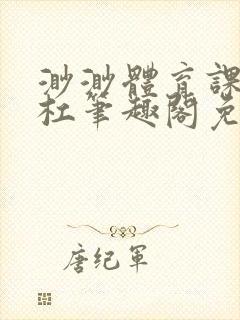 渺渺體育課
杜筆趣閣免
唐纪軍